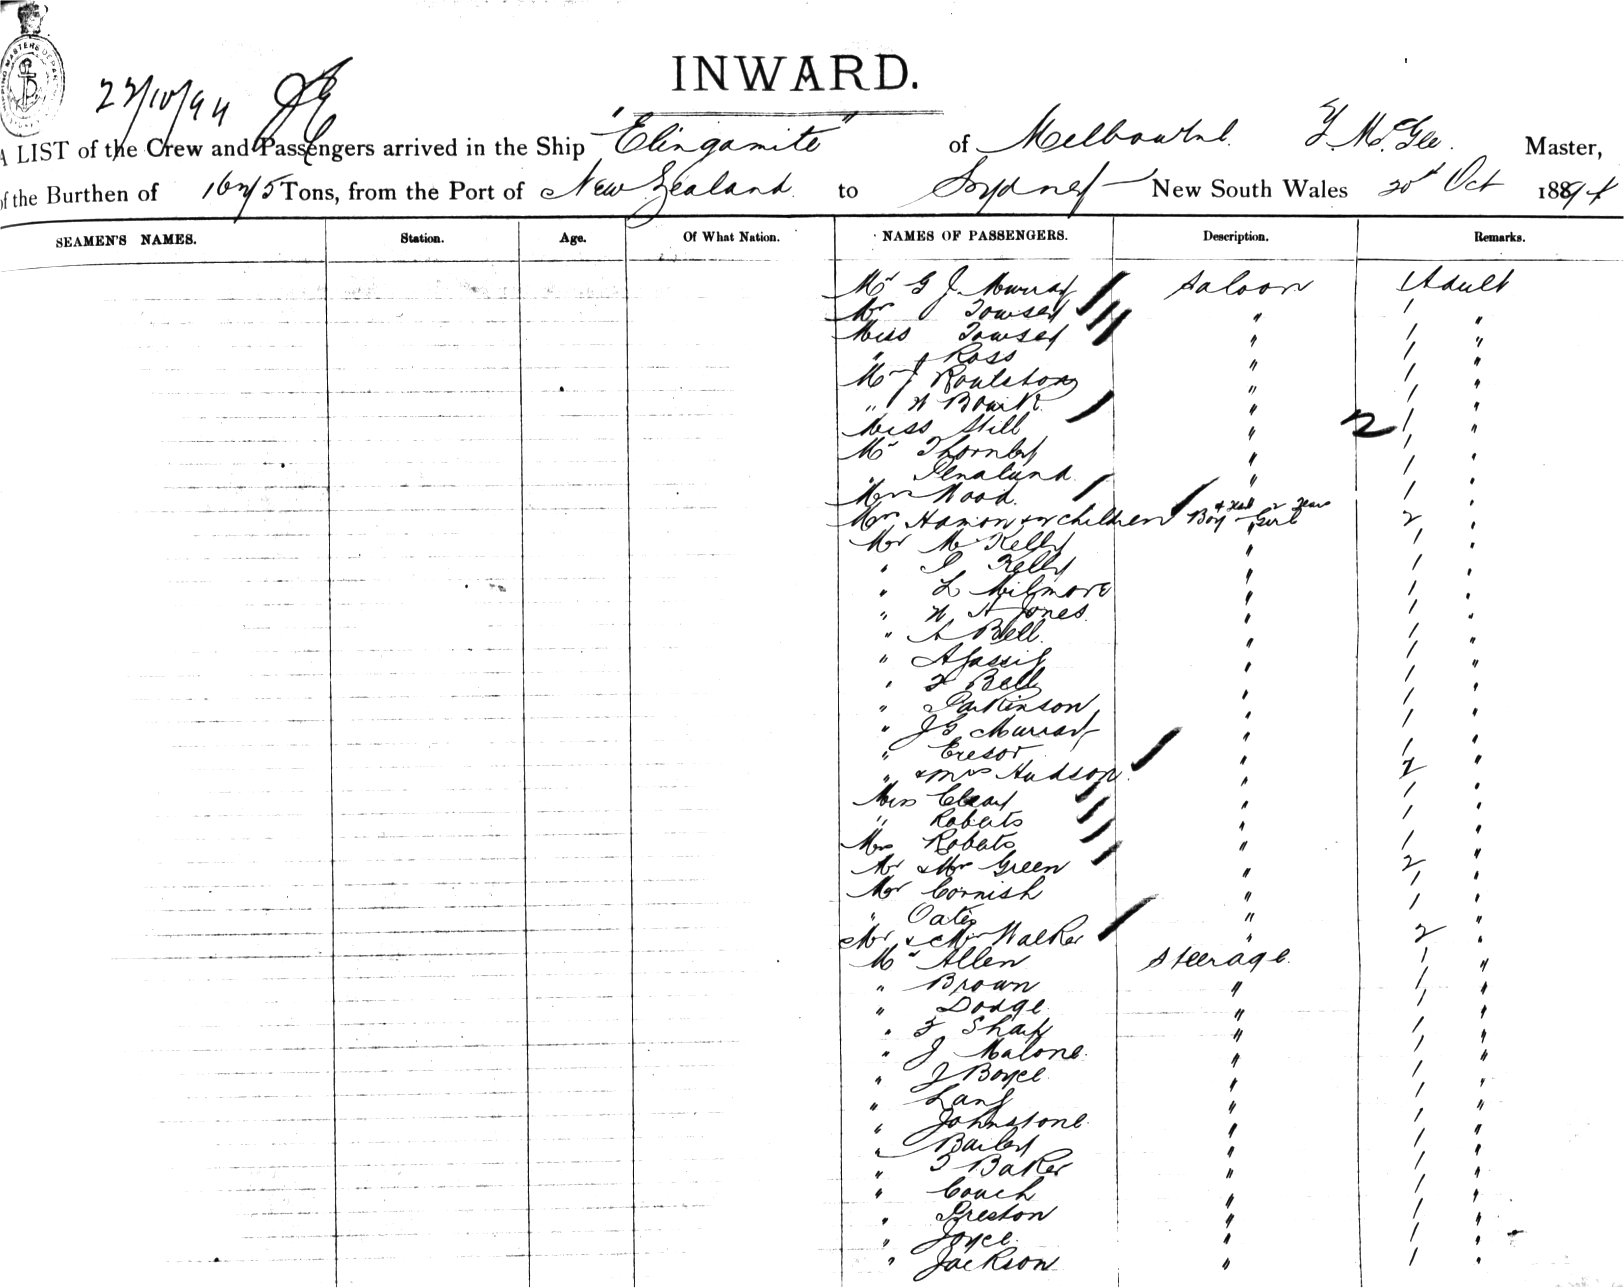 INWARD.
22/10/94
A LIST of the Crew and Passengers arrived in the Ship "Elingamite" of Melbourne. McGee. Master,
of the Burthen of 1675 Tons, from the Port of New Zealand. to Sydney New South Wales 20th Oct 1894
SEAMEN'S NAMES. Station. Age. Of What Nation. NAMES OF PASSENGERS. Description. Remarks.
Mr G J. Murray Saloon 1 Adult
Mr Towsey " 1 "
Miss Towsey " 1 "
" Ross " 1 "
Mr J Roulston " 1 "
" W Bowik " 1 "
Miss Still " 2 1 "
Mr Thornley " 1 "
" " 1 "
Mrs Wood. " 1 "
Mrs Hamon & children Boy Girl 2 "
Mr M Kelly " 1 "
" Kelly " 1 "
" L Milmore " 1 "
" W H Jones. " 1 "
" A Bell. " 1 "
" " 1 "
" Bell " 1 "
" Parkinson " 1 "
" J G Murray " 1 "
" " 1 "
" & Mrs Hudson " 2 "
Miss Cleary " 1 "
" Roberts " 1 "
Mrs Roberts " 1 "
Mr & Mrs Green " 2 "
Mr Cornish " 1 "
" Oates " 1 "
Mr & Mrs Walker " 2 "
Mr Allen Steerage. 1 "
" Brown " 1 "
" Dodge. " 1 "
" Sharp " 1 "
" J Malone. " 1 "
" J Boyce " 1 "
" Lang " 1 "
" Johnstone. " 1 "
" Bailey " 1 "
" Baker " 1 "
" Couch " 1 "
" Preston " 1 "
" Joyce. " 1 "
" Jackson. " 1 "